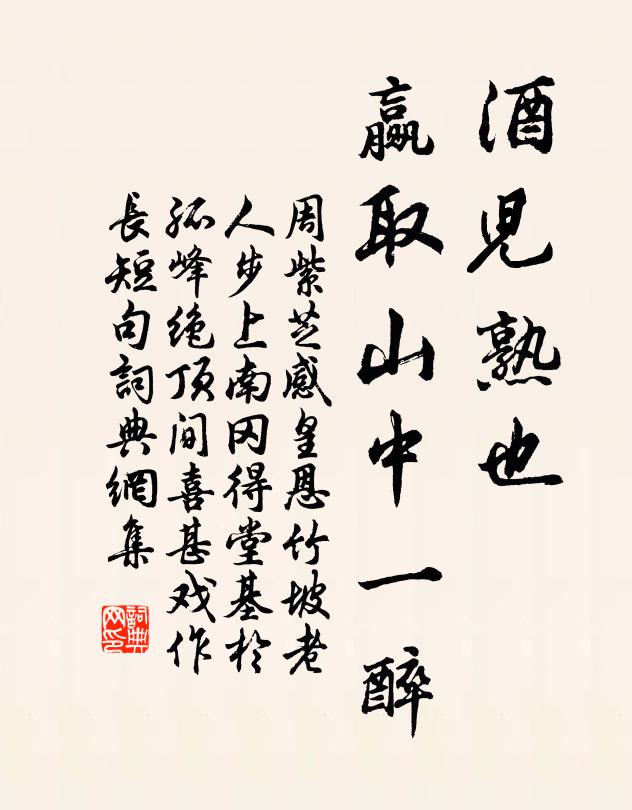 酒児熟也
赢取山中一醉
周紫芝感皇恩竹坡老
人步上南冈得堂基於
孤峰绝顶间喜甚戏作
長短句詞典網集
詞典
网印